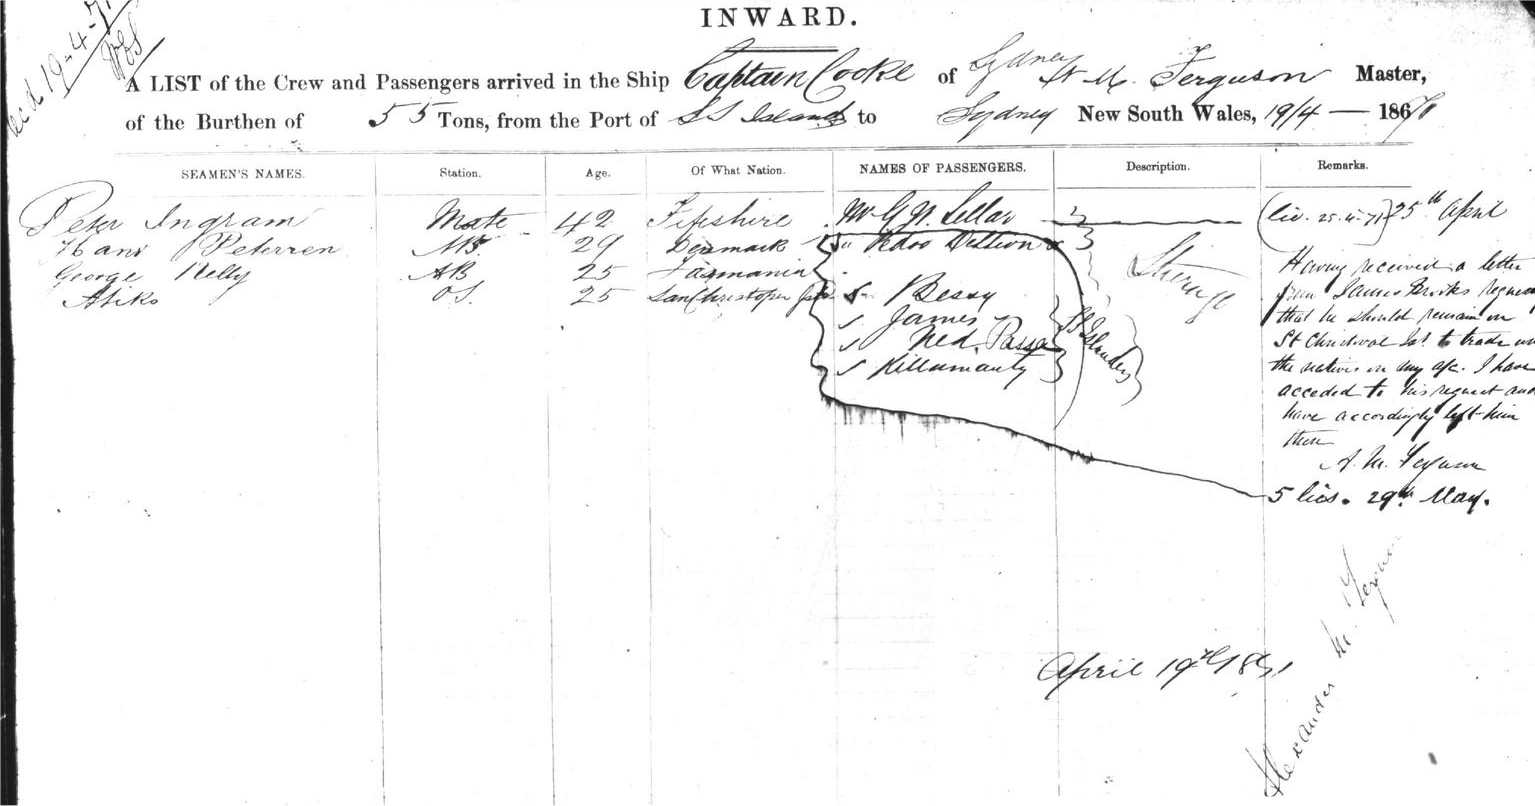 INWARD.
19-4-71
A LIST of the Crew and Passengers arrived in the Ship Captain Cooke of Sydney A. M. Ferguson Master,
of the Burthen of 55 Tons, from the Port of SS Islands to Sydney New South Wales, 19/4 — 1871
SEAMEN'S NAMES. Station. Age. Of What Nation. NAMES OF PASSENGERS. Description. Remarks.
Peter Ingram Mate 42 Fifeshire Mr G N. Sellar (lic. 25.4.71) 25th April
Hans Peterren AB. 29 Denmark Pedro
George Kelly AB 25 Tasmania
Atiko OS. 25 San Christoper
S Bessy
S James
S Ned.
S Killamanty
SS Islanders
Steerage
Having received a letter
from James Brooks
that he should remain on
St Christoval Isl to trade
the natives on my a/c. I have
acceded to his request and
have accordingly left him
there
A. M. Ferguson
5 lics. 29th May.
April 19th 1871
Alexander M. Ferguson